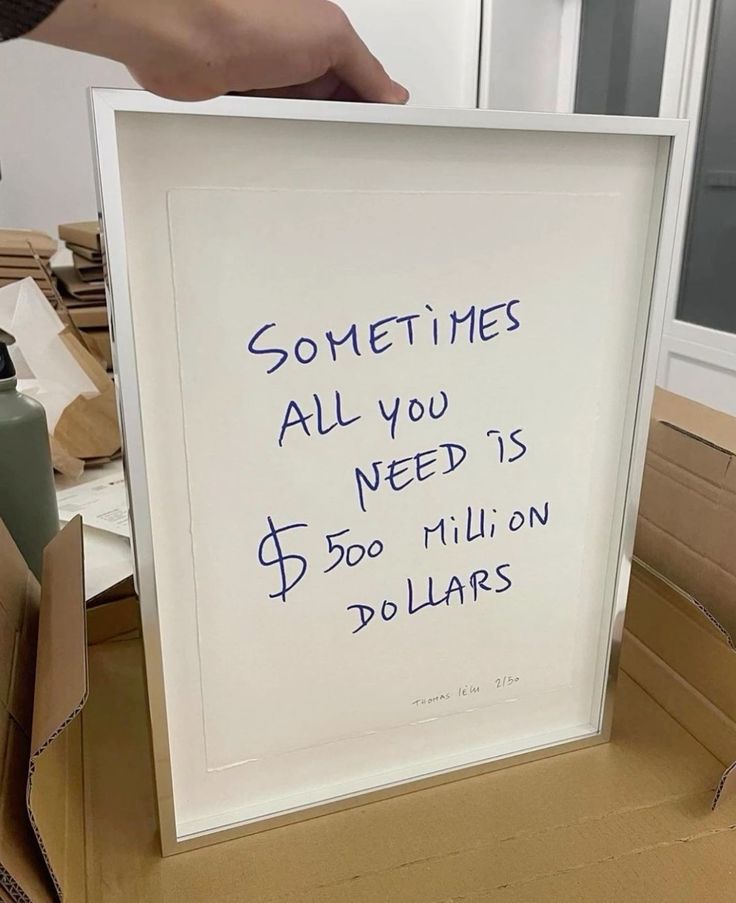 SOMETIMES
ALL YOU
NEED IS
$500 MILLION
DOLLARS
THOMAS lélu 2/50